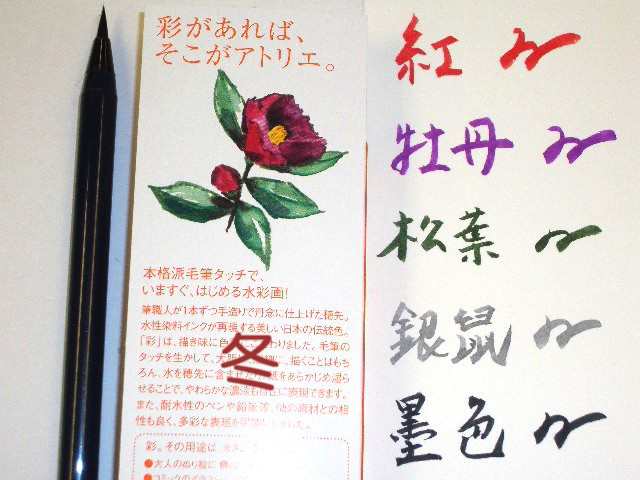 彩があれば、
そこがアトリエ。
本格派毛筆タッチで、
いますぐ、はじめる水彩画!
筆職人が1本ずつ手造りで丹念に仕上げた穂先。
水性染料インクが再現する美しい日本の伝統色。
「彩」は、描き味に色 わりました。毛筆の
タッチを生かして、大胆 に、描くことはもち
ろん、水を穂先に含ませ 紙をあらかじめ湿ら
せることで、やわらかな濃淡も自在に表現できます。
また、耐水性のペンや鉛筆等、他の画材との相
性も良く、多彩な表現を
冬
彩。その用途は、
●大人のぬり絵に
●コミックのイラスト
紅
牡丹
松葉
銀鼠
墨色